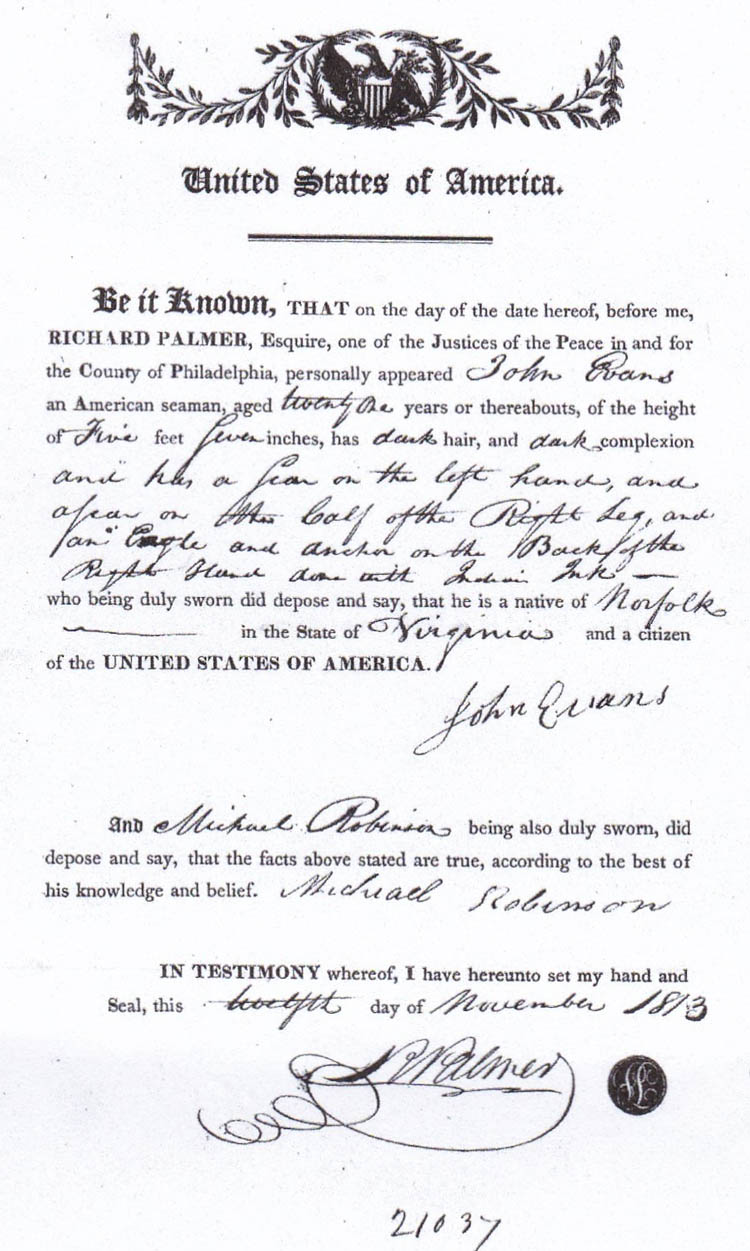 United States of America.
Be it Known, THAT on the day of the date hereof, before me,
RICHARD PALMER, Esquire, one of the Justices of the Peace in and for
the County of Philadelphia, personally appeared John Evans
an American seaman, aged twenty One years or thereabouts, of the height
of Five feet Seven inches, has dark hair, and dark complexion
and has a Scar on the left hand, and
a scar on the Calf of the Right Leg, and
an Eagle and anchor on the Back of the
Right Hand done with Indian Ink —
who being duly sworn did depose and say, that he is a native of Norfolk
in the State of Virginia and a citizen
of the UNITED STATES OF AMERICA.
John Evans
And Michael Robinson being also duly sworn, did
depose and say, that the facts above stated are true, according to the best of
his knowledge and belief. Micheall Robinson
IN TESTIMONY whereof, I have hereunto set my hand and
Seal, this twelfth day of November 1813
R Palmer
21037